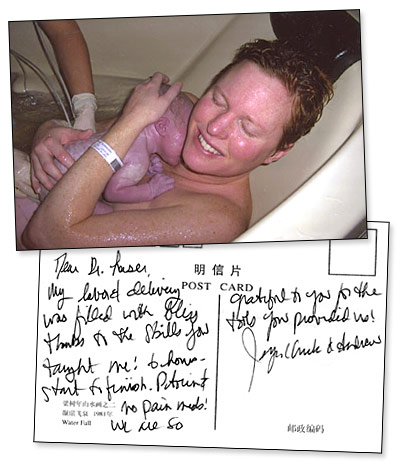 Dear Dr.
明信片
POST CARD
My labor & delivery
was filled with Bliss
thanks to the skills you
taught me! 6 hours-
start to finish.
no pain meds!
We are so
grateful to you for the
tools you provided us!
& Andrew
1981年
Water Fall
邮政编码